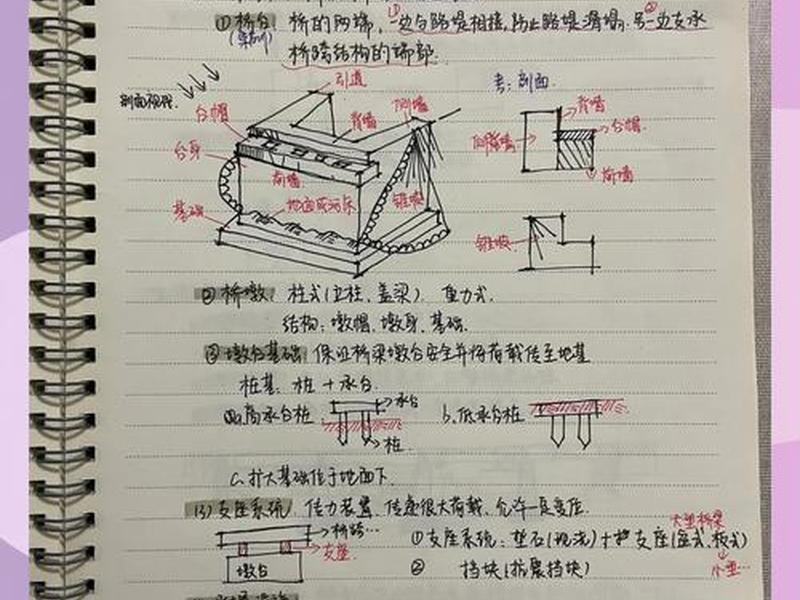 ①桥台: 桥的两端, ①一边与路堤相接, 防止路堤滑塌; ②另一边支承
桥跨结构的端部.
引道
考: 剖面.
剖面视程.
台帽
背墙
侧墙
背墙
台帽.
台身
前墙
前墙
锥坡
基础
锥坡
②桥墩: 柱式(立柱、盖梁). 重力式.
结构: 墩帽、墩身、基础.
③墩台基础: 保证桥梁墩台安全并将荷载传至地基
桩基: 桩 + 承台.
a.高承台桩
承台
b.低承台桩
桩.
c.扩大基础位于地面下.
(3)支座系统: 传力装置, 传递很大荷载、允许一定变位.
桥跨…
支座.
墩台
大型桥梁
①支座系统: 垫石(现浇)+支座(盆式、板式)
小型…
② 挡块(抗震挡块)